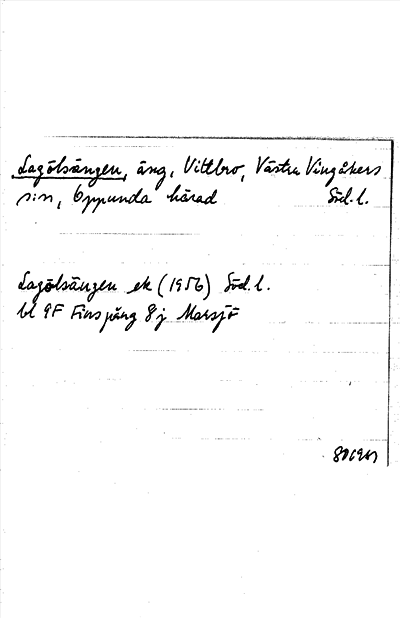 Lagölsängen, äng, Vittbro, Västra Vingåkers
sn, Oppunda härad Söd. l.
Lagölsängen ek (1956) Söd. l.
bl 9F Finspång 8j Marsjö